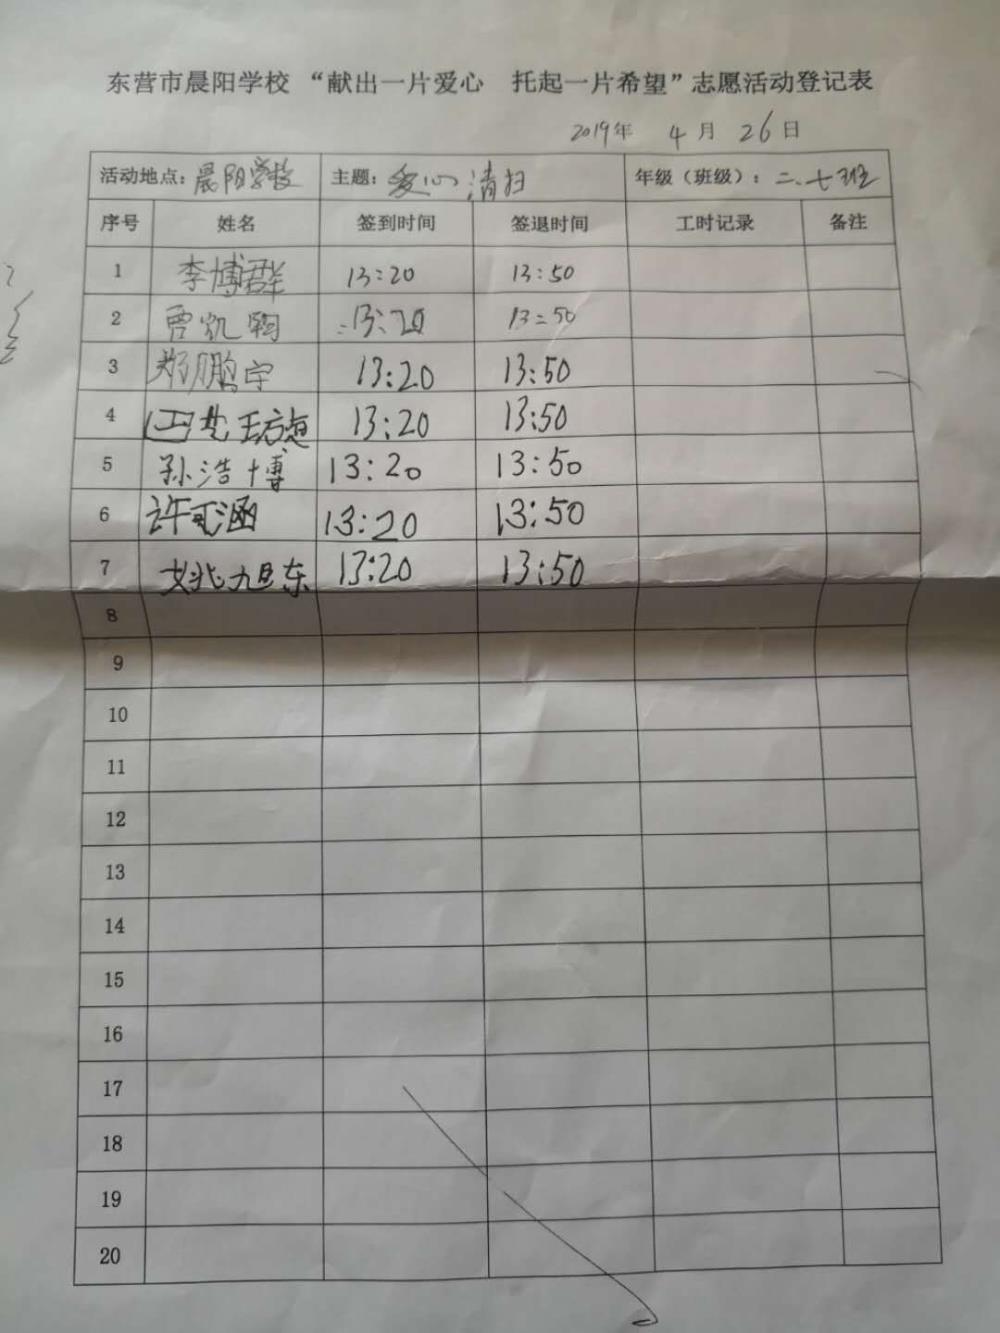 东营市晨阳学校 “献出一片爱心 托起一片希望” 志愿活动登记表
2019年 4月 26日
活动地点：晨阳学校 主题：爱心清扫 年级（班级）：二.七班
序号 姓名 签到时间 签退时间 工时记录 备注
1 李博群 13:20 13:50
2 贾凯 13:20 13:50
3 郑鹏宇 13:20 13:50
4 13:20 13:50
5 孙浩博 13:20 13:50
6 许可涵 13:20 13:50
7 姚旭东 13:20 13:50
8
9
10
11
12
13
14
15
16
17
18
19
20